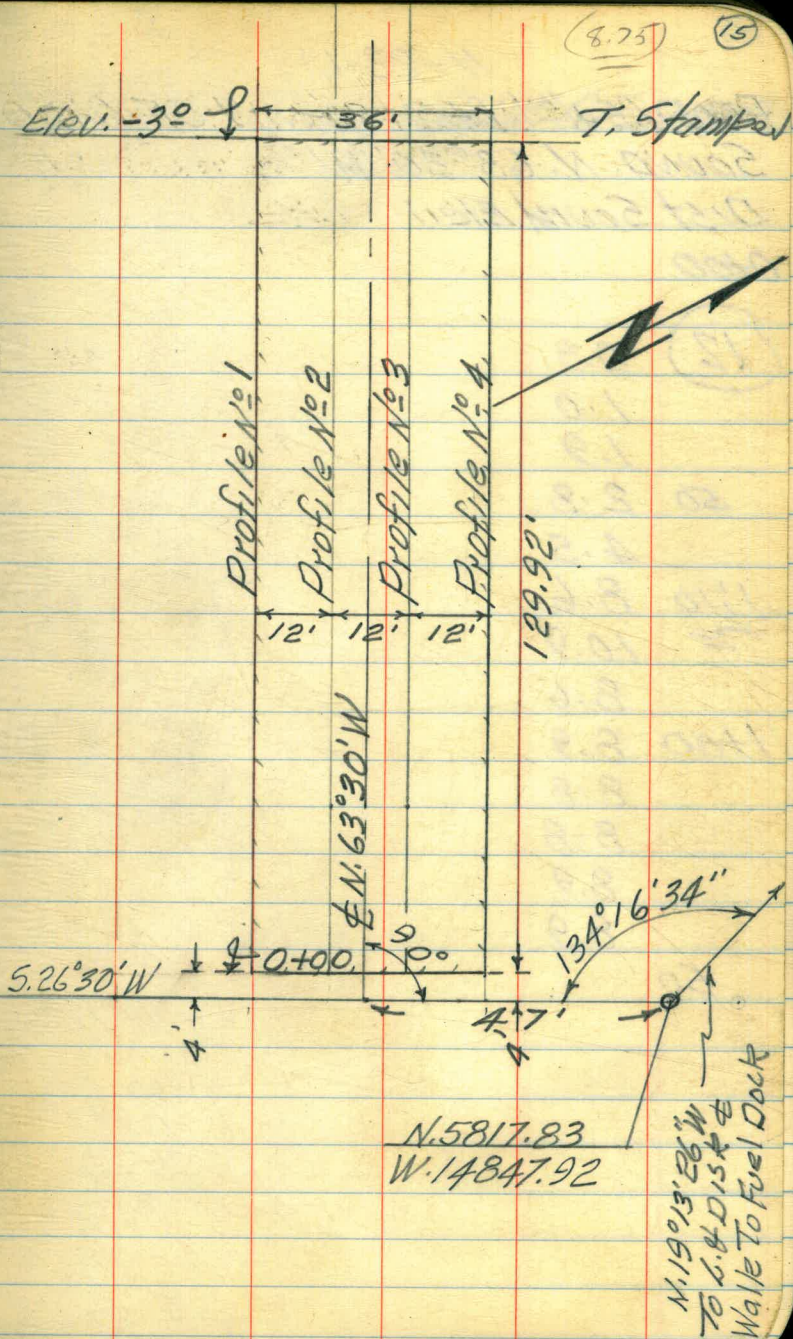 (8.75)
15
Elev. -3º
36'
T. Stamped
Profile Nº1
Profile Nº2
Profile Nº3
Profile Nº4
12'
12'
12'
129.92'
℄ N.63°30'W
0+00
90°
134°16'34"
S.26°30'W
4'
47'
4'
N.5817.83
W.14847.92
N.19°13'26"W
To L.& Disk ℄
Walk To Fuel Dock